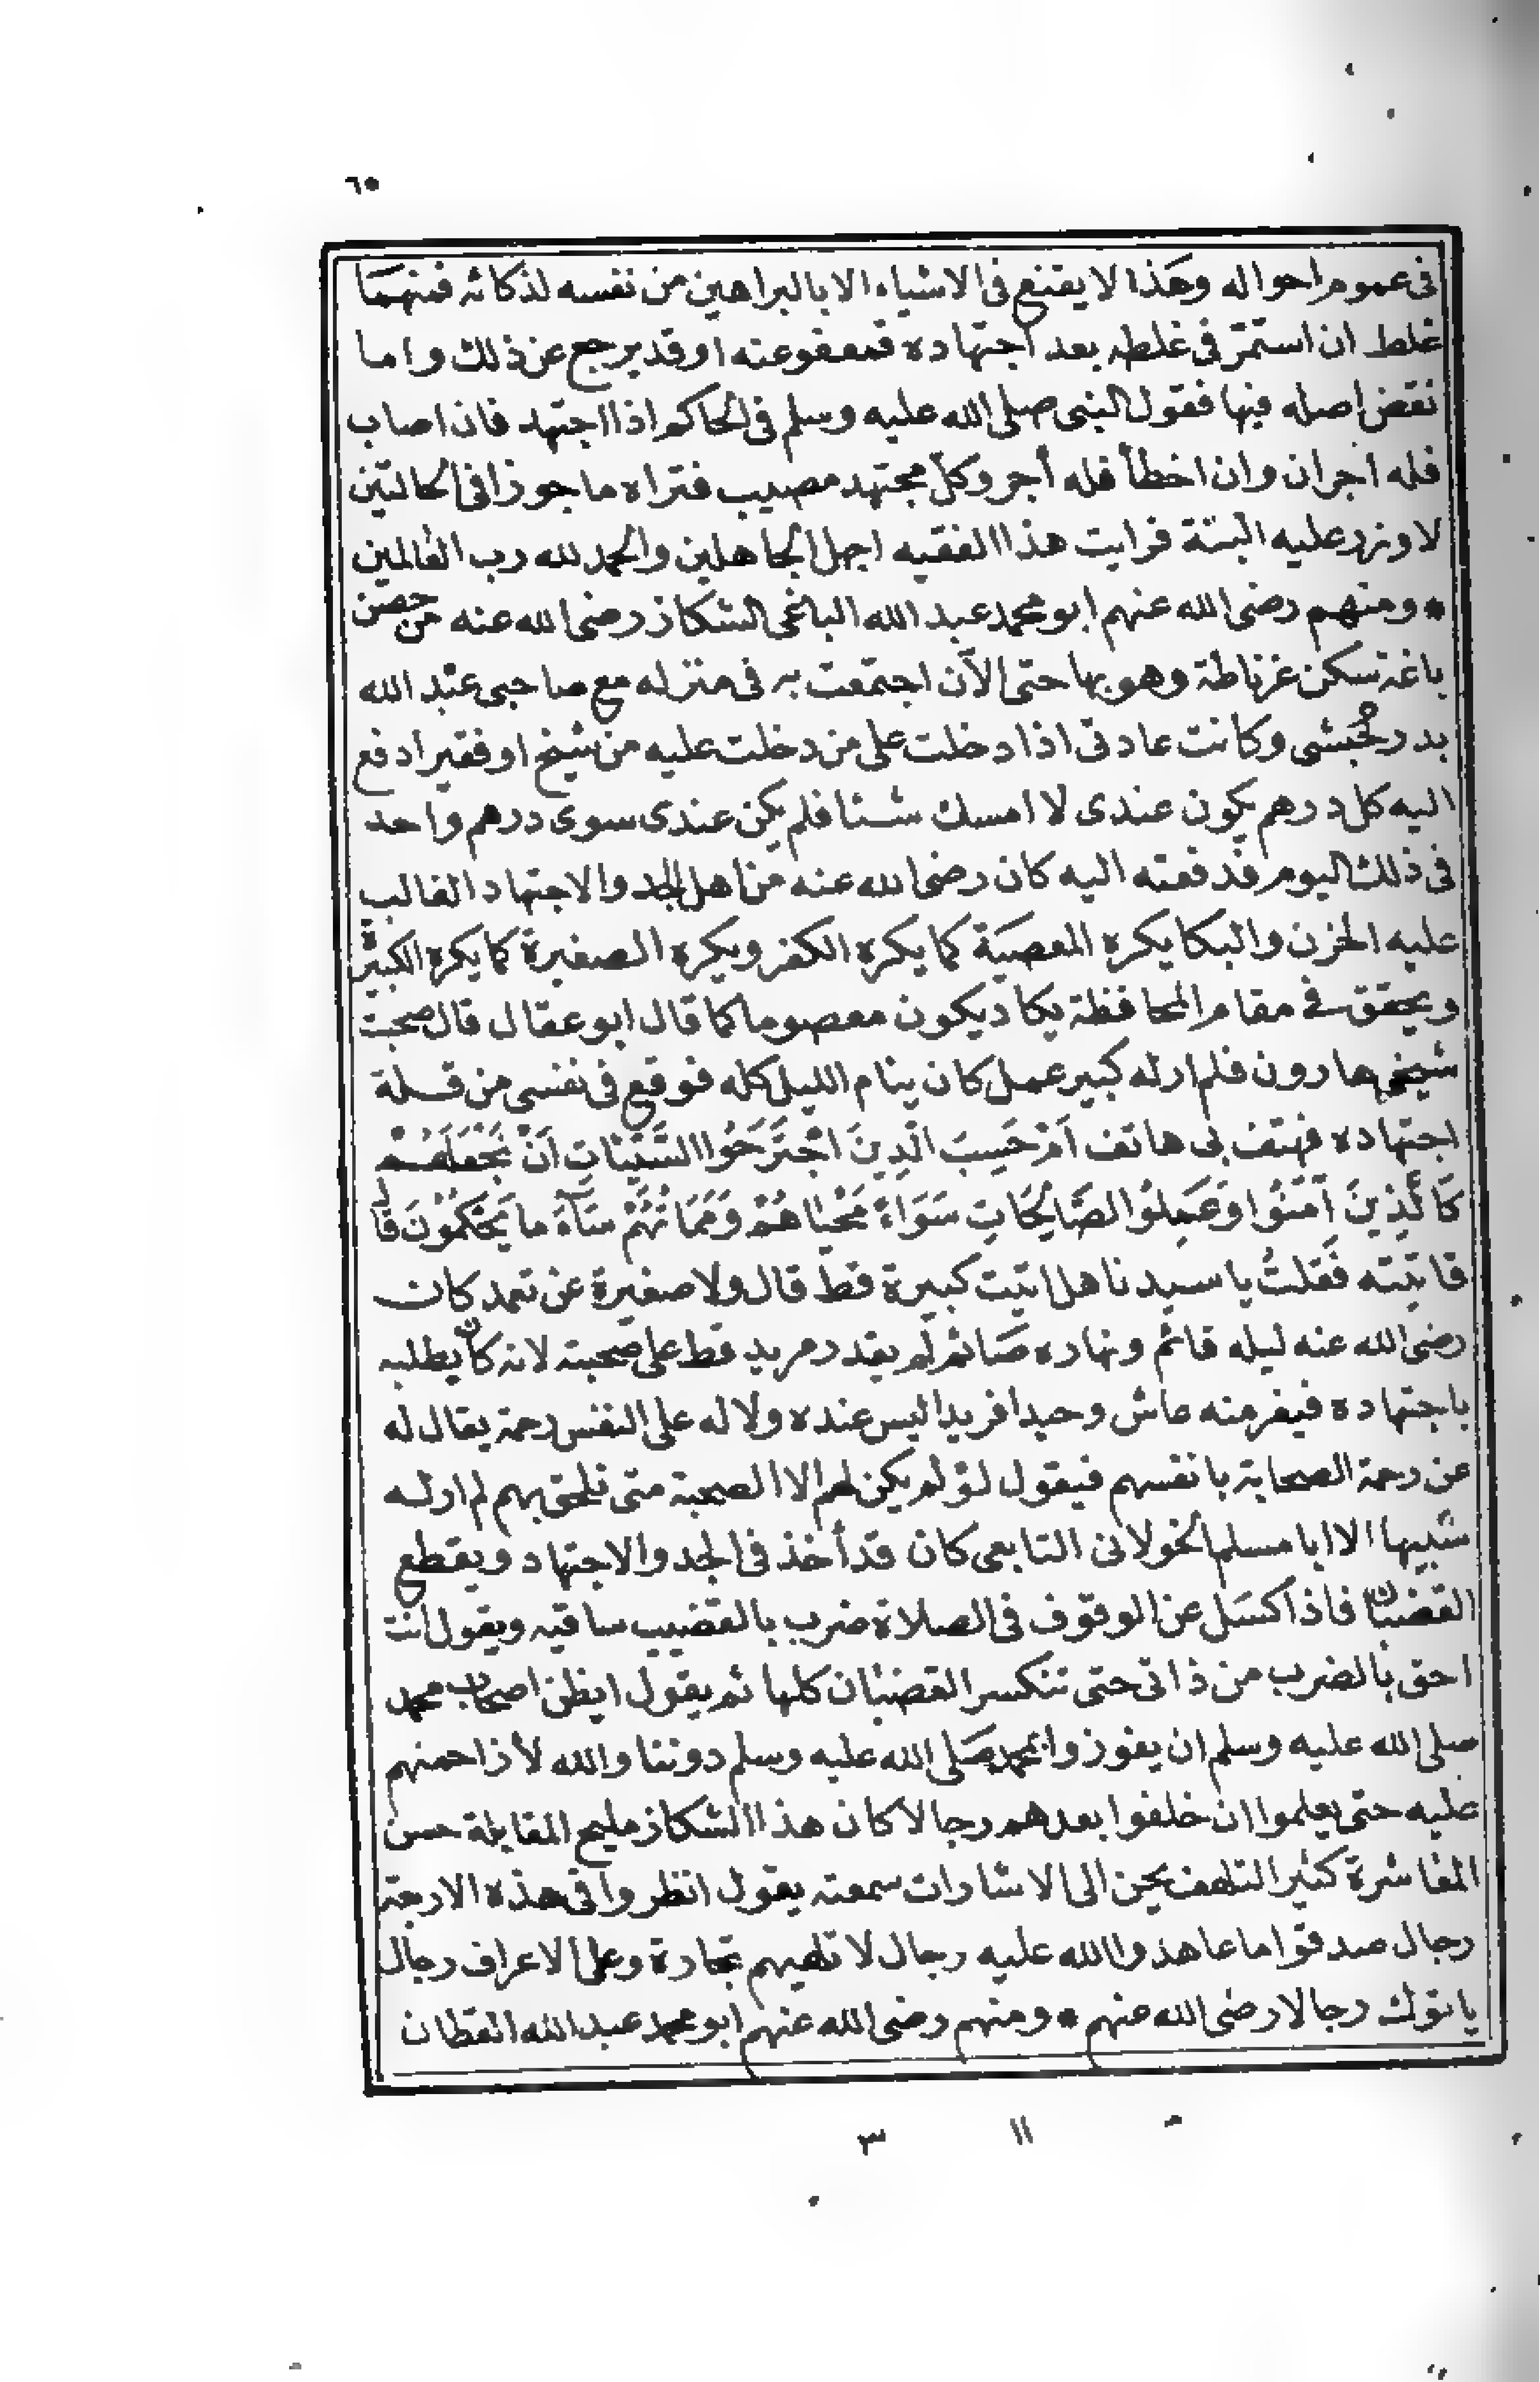 ٦٥
فى عموم احواله وهذا لا يقنع فى الاشياء الا بالبراهين من نفسه لذكائه فمهما
غلط ان استمر فى غلطه بعد اجتهاده فمعفو عنه او قد يرجع عن ذلك واما
نقض اصله فيها فقول النبى صلى الله عليه وسلم فى الحاكم اذا اجتهد فان اصاب
فله اجران وان اخطأ فله أجر وكل مجتهد مصيب فتراه ماجورا فى الحالتين
لا وزر عليه البتة فرايت هذا الفقيه اجهل الجاهلين والحمد لله رب العالمين
* ومنهم رضى الله عنهم ابو محمد عبد الله الباغى الشكاز رضى الله عنه من حصن
باغة سكن غرناطة وهو بها حتى الآن اجتمعت به فى منزله مع صاحبى عبد الله
بدر حبشى وكانت عادتى اذا دخلت على من دخلت عليه من شيخ او فقير ادفع
اليه كل درهم يكون عندى لا امسك شيئا فلم يكن عندى سوى درهم واحد
فى ذلك اليوم فدفعته اليه كان رضى الله عنه من اهل الجد والاجتهاد الغالب
عليه الحزن والبكا يكره المعصية كما يكره الكفر ويكره الصغيرة كما يكره الكبيرة
ويحقق فى مقام المحافظة يكاد يكون معصوما كما قال ابو عقال قال صحبت
شيخى هارون فلم ار له كبير عمل كان ينام الليل كله فوقع فى نفسى من قلة
اجتهاده فهتف بى هاتف اَمْ حَسِبَ الَّذِينَ اجْتَرَحُوا السَّيِّئاتِ اَنْ نَجْعَلَهُمْ
كَالَّذِينَ آمَنُوا وَعَمِلُوا الصَّالِحَاتِ سَوَاءً مَحْيَاهُمْ وَمَمَاتُهُمْ سَآءَ مَا يَحْكُمُونَ قال
فاتيته فَقلتُ يا سيدنا هل اتيت كبيرة قط قال ولا صغيرة عن تعمد كان
رضى الله عنه ليله قائم ونهاره صَائم لم يقدر مريد قط على صحبته لانه كان يطلبه
باجتهاده فيفر منه عاش وحيدا فريدا ليس عنده ولا له على النفس رحمة يقال له
عن رحمة الصحابة بانفسهم فيقول لو لم يكن لهم الا الصحبة متى نلحق بهم لم ار له
شبيها الا ابا مسلم الخولانى التابعى كان قد أخذ فى الجد والاجتهاد ويقطع
القضبان فاذا كسَل عن الوقوف فى الصلاة ضرب بالقضيب ساقيه ويقول انت
احق بالضرب من ذاتى حتى تنكسر القضبان كلها ثم يقول ايظن اصحاب محمد
صلى الله عليه وسلم ان يفوزوا بمحمد صَلى الله عليه وسلم دوننا والله لأزاحمنهم
عليه حتى يعلموا ان خلفوا بعدهم رجالا كان هذا الشكاز مليح المقابلة حسن
المعاشرة كثير التلهف يحن الى الاشارات سمعته يقول انظروا فى هذه الاربعة
رجال صدقوا ما عاهدوا الله عليه رجال لا تلهيهم تجارة وعلى الاعراف رجال
ياتوك رجالا رضى الله عنهم * ومنهم رضى الله عنهم ابو محمد عبد الله القطان
١١ ٣